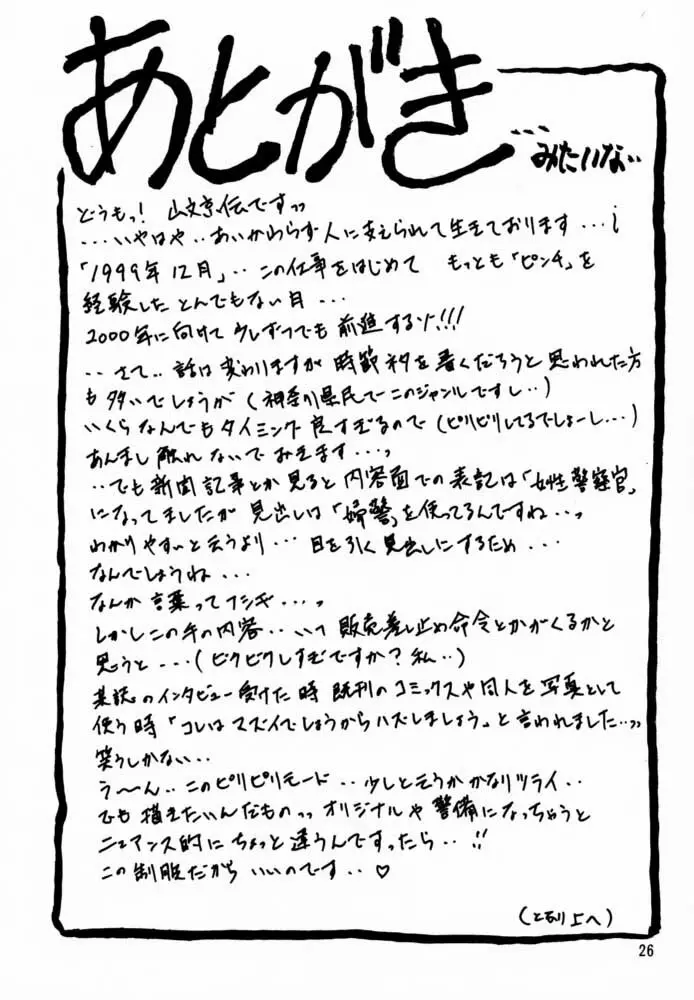 あとがき
...みたいな..
どうもっ! 山文京伝ですっっ
...いやはや..あいかわらず人に支えられて生きております...¡
「1999年12月」..この仕事をはじめて もっとも「ピンチ」を
経験したとんでもない月...
2000年に向けて少しずつでも前進するゾ!!!
..さて..話は変わりますが時節ネタを書くだろうと思われた方
も多いでしょうが(神奈川県民でこのジャンルですし..)
いくらなんでもタイミング良すぎるので(ピリピリしてるでしょーし...)
あんまし触れないでおきます...っ
..でも新聞記事とか見ると内容面での表記は「女性警察官」
になってましたが見出しは「婦警」を使ってるんですね..っ
わかりやすいと云うより...目を引く見出しにするため...
なんでしょうね...
なんか言葉ってフシギ...っ
しかしこの手の内容..いつ販売差し止め命令とかがくるかと
思うと...(ビクビクしすぎですか?私..)
某誌のインタビュー受けた時既刊のコミックスや同人を写真として
使う時「コレはマズイでしょうからハズしましょう」と言われました..っっ
笑うしかない..
う〜ん..このピリピリモード..少しと云うかかなりツライ..
でも描きたいんだものっっオリジナルや警備になっちゃうと
ニュアンス的にちょっと違うんですったら..!!
この制服だから いいのです..♡
(となり上へ)
26